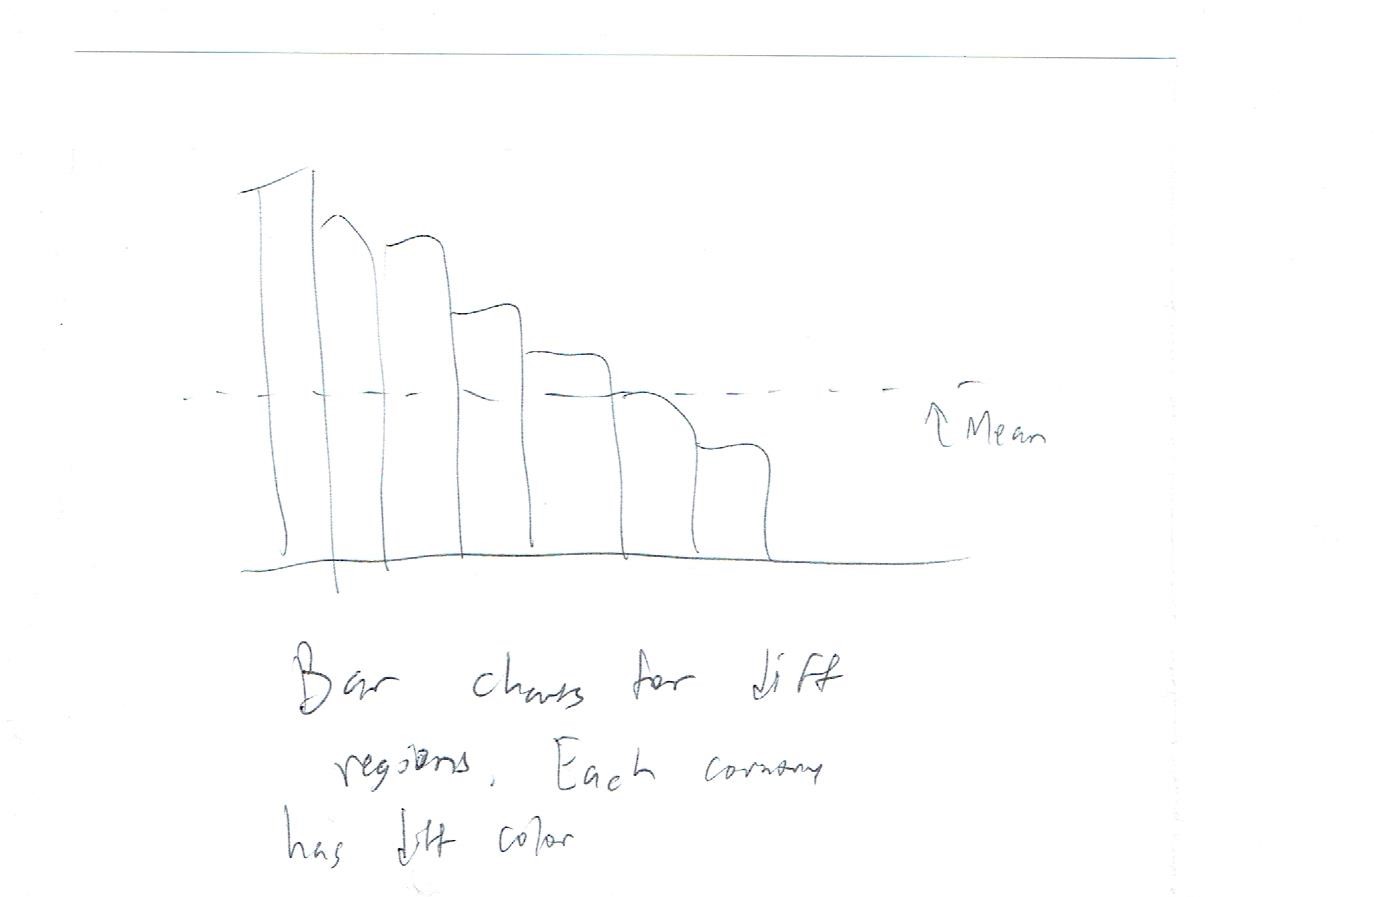 Mean
Bar charts for diff
regions. Each
has diff color